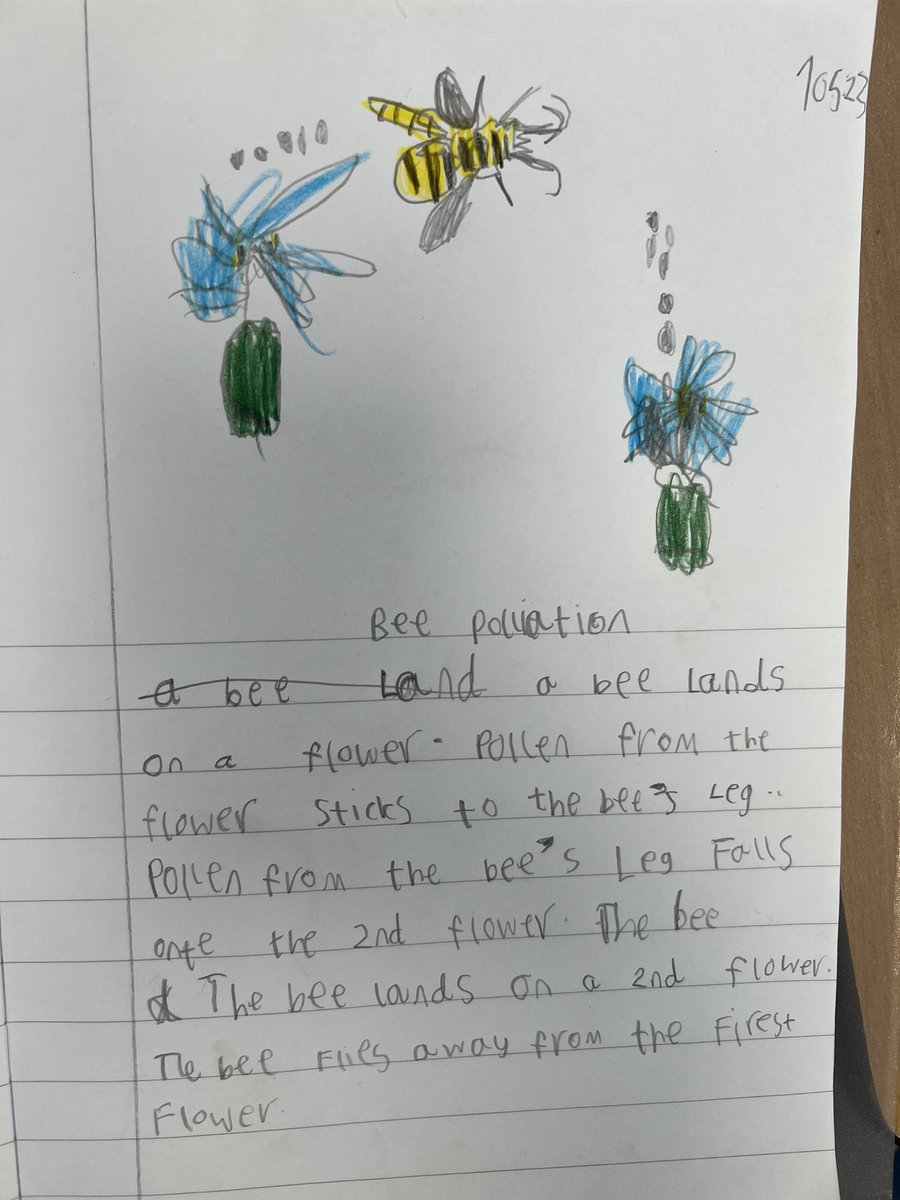 10523
Bee polliation
a bee Land a bee lands
on a flower. Pollen from the
flower sticks to the bee's Leg..
Pollen from the bee's Leg Falls
onte the 2nd flower. The bee
The bee lands on a 2nd flower.
The bee Flies away from the Firest
Flower.